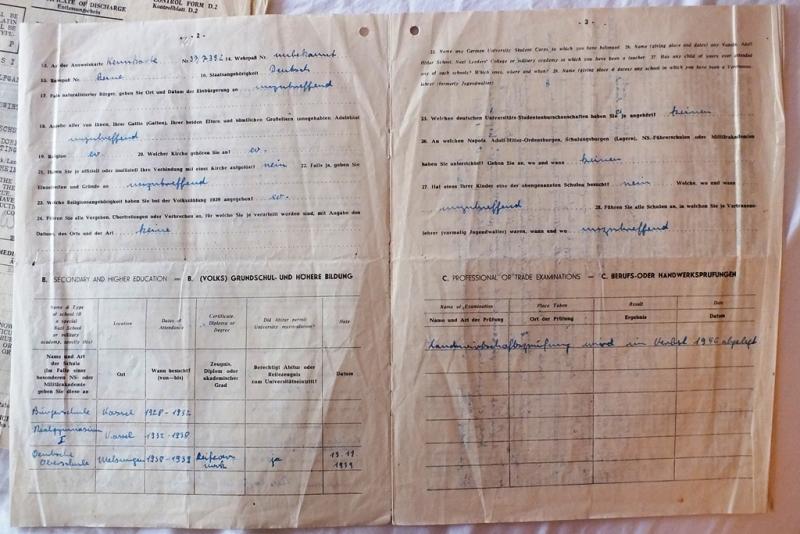 OF DISCHARGE
Entlassungschein
CONTROL FORM D.2
Kontrollblatt D.2
- 2 -
13. Art der Ausweiskarte Kennkarte Nr. 14. Wehrpaß Nr. unbekannt
15. Reisepaß Nr. keine 16. Staatsangehörigkeit Deutsch
17. Falls naturalisierter Bürger, geben Sie Ort und Datum der Einbürgerung an unzutreffend
18. Angabe aller von Ihnen, Ihrer Gattin (Gatten), Ihrer beiden Eltern und sämtlichen Großeltern innegehabten Adelstitel
unzutreffend
19. Religion ev. 20. Welcher Kirche gehören Sie an? ev.
21. Haben Sie je offiziell oder inoffiziell Ihre Verbindung mit einer Kirche aufgelöst? nein 22. Falls ja, geben Sie
Einzelheiten und Gründe an unzutreffend
23. Welche Religionsangehörigkeit haben Sie bei der Volkszählung 1939 angegeben? ev.
24. Führen Sie alle Vergehen, Übertretungen oder Verbrechen an, für welche Sie je verurteilt worden sind, mit Angabe des
Datums, des Orts und der Art keine
B. SECONDARY AND HIGHER EDUCATION — B. (VOLKS) GRUNDSCHUL- UND HÖHERE BILDUNG
Name & Type
of school (if
a special
Nazi School
or military
academy, specify this)
Location
Dates of
Attendance
Certificate
Diploma or
Degree
Did Abitur permit
University matriculation?
Date
Name und Art
der Schule
(Im Falle einer
besonderen NS- oder
Militärakademie
geben Sie diese an
Ort
Wann besucht?
(von—bis)
Zeugnis,
Diplom oder
akademischer
Grad
Berechtigt Abitur oder
Reifezeugnis
zum Universitätseintritt?
Datum
Bürgerschule Kassel 1928 - 1932
Realgymnasium
I Kassel 1932 - 1938
Deutsche
Oberschule Melsungen 1938 - 1939 ja
1939
- 3 -
25. Name any German University Student Corps to which you have belonged. 26. Name (giving place and dates) any Napola, Adolf
Hitler School, Nazi Leaders' College or military academy in which you have been a teacher. 27. Has any child of yours ever attended
any of such schools? Which ones, where and when? 28. Name (giving place & dates) any school in which you have been a Vertrauens-
lehrer (formerly Jugendwalter)
25. Welchen deutschen Universitäts-Studentenburschenschaften haben Sie je angehört? keinen
26. An welchen Napola, Adolf-Hitler-Ordensburgen, Schulungsburgen (Lagern), NS-Führerschulen oder Militärakademien
haben Sie unterrichtet? Geben Sie an, wo und wann keinen
27. Hat eines Ihrer Kinder eine der obengenannten Schulen besucht? nein Welche, wo und wann
unzutreffend 28. Führen Sie alle Schulen an, in welchen Sie je Vertrauens-
lehrer (vormalig Jugendwalter) waren, wann und wo unzutreffend
C. PROFESSIONAL OR TRADE EXAMINATIONS — C. BERUFS-ODER HANDWERKSPRÜFUNGEN
Name of Examination Place Taken Result Date
Name und Art der Prüfung Ort der Prüfung Ergebnis Datum
Landwirtschaftsprüfung wird im Herbst 1946 abgelegt